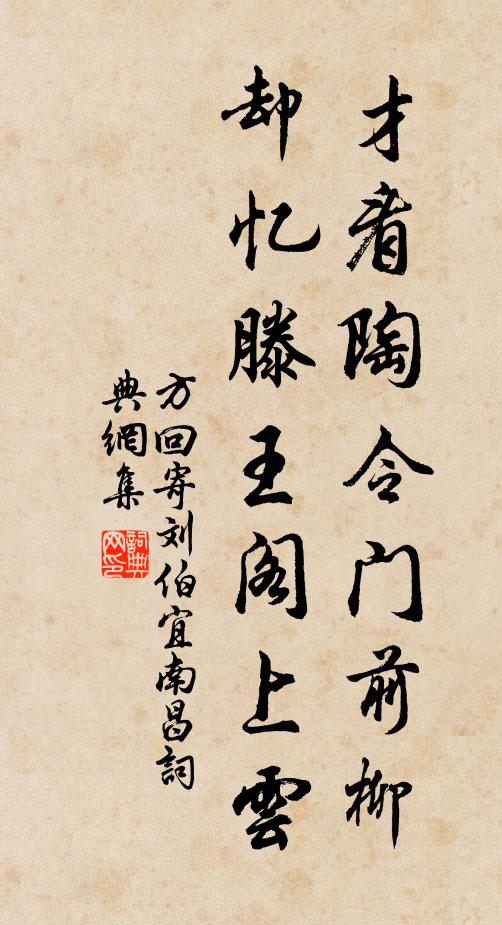 才看陶令门前柳
却忆滕王阁上雲
方回寄刘伯宜南昌詞
典網集
詞典网印